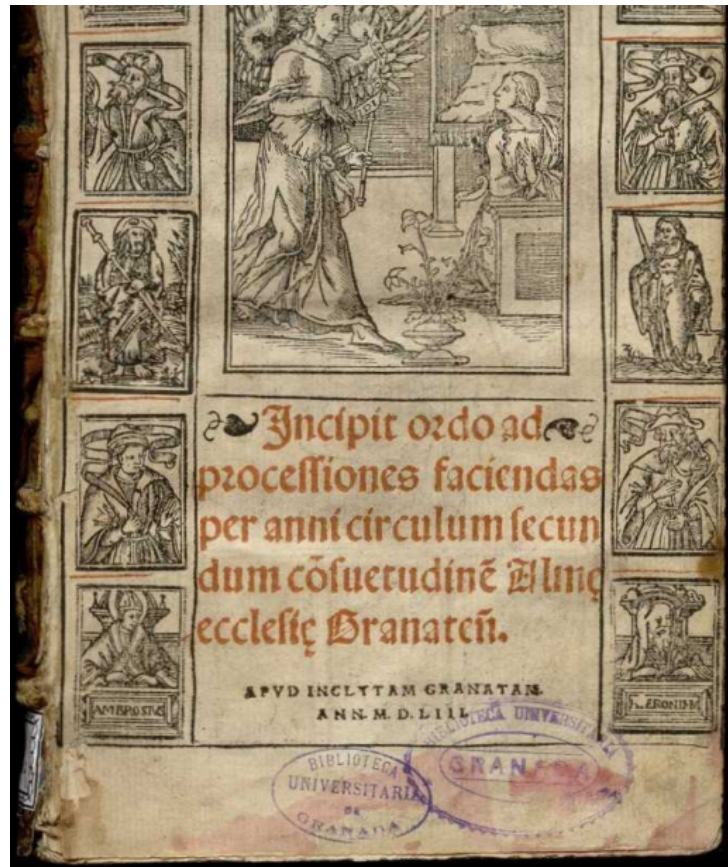 Incipit ordo ad
processiones faciendas
per anni circulum secun
dum cõsuetudinẽ Almę
ecclesię Granateñ.
APVD INCLYTAM GRANATAM.
ANN. M. D. LIII.
AMBROSIVS
HIERONIM
BIBLIOTECA UNIVERSITARIA
GRANADA
BIBLIOTECA
UNIVERSITARIA
DE
GRANADA